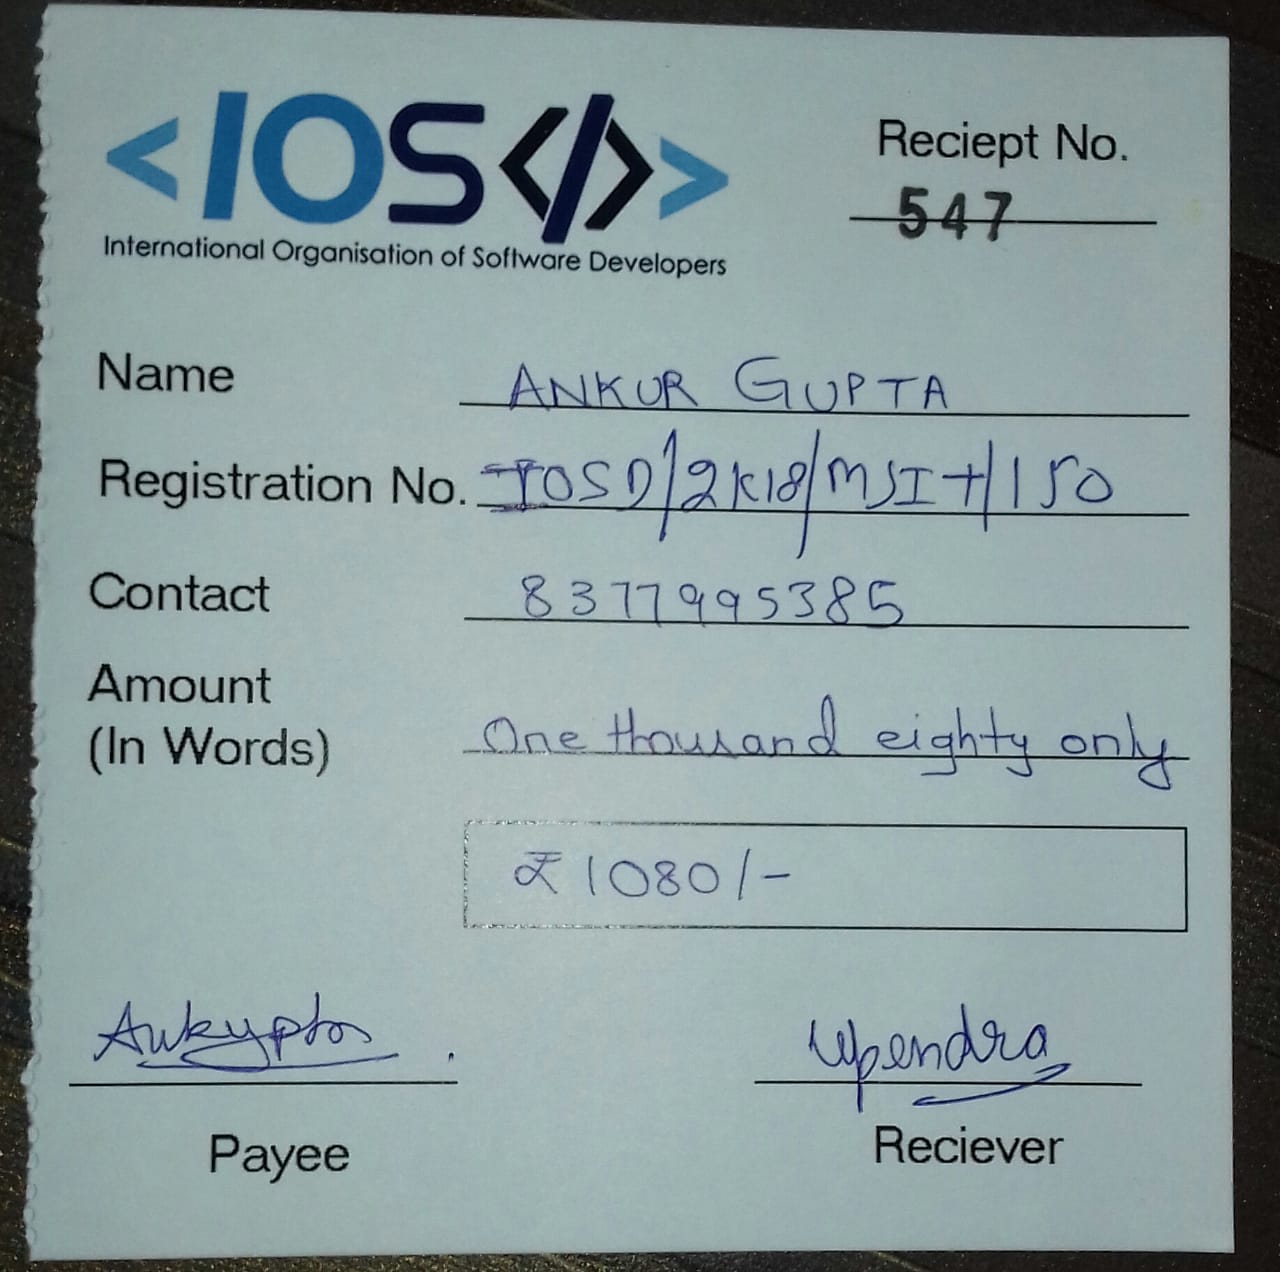 <IOS</>>
International Organisation of Software Developers
Reciept No.
547
Name ANKUR GUPTA
Registration No. IOSD/2K18/MSIT/150
Contact 8377995385
Amount
(In Words) One thousand eighty only
₹ 1080/-
Upendra
Payee Reciever